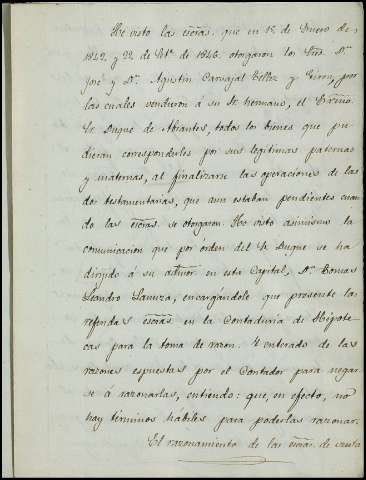 He visto las escras. que en 1º de Enero de
1842 y 22 de Stbe. de 1846 otorgaron los Sres. Dn.
José y Dn. Agustin Carvajal Tellez y Giron, por
las cuales vendieron á su Sr. hermano, el Excmo.
Sr. Duque de Abrantes, todos los bienes que pu-
dieran corresponderles por sus legitimas paternas
y maternas, al finalizarse las operaciones de las
dos testamentarias, que aun estaban pendientes cuan-
do las escras. se otorgaron. He visto asimismo la
comunicacion que por órden del Sr. Duque se ha
dirijido á su admor. en esta Capital, Dn. Tomas
Leandro Lanuza, encargándole que presente las
referidas escras. en la Contaduria de Hipote-
cas para la toma de razon. Y enterado de las
razones espuestas por el Contador para negar-
se á razonarlas, entiendo: que, en efecto, no
hay términos hábiles para poderlas razonar.
El razonamiento de las escras. de venta